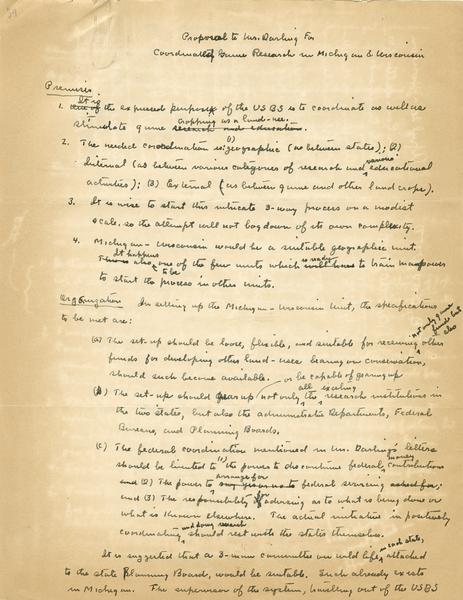 Proposal to Mr. Darling For
Coordinated Game Research in Michigan & Wisconsin
Premises.
It is
1. One of the expressed purposes of the USBS is to coordinate as well as
cropping as a land-use.
stimulate game research and education.
2. The needed coordination is (1) geographic (as between states); (2)
various
Internal (as between various categories of research and educational
activities); (3) External (as between game and other land crops).
3. It is wise to start this intricate 3-way process on a modest
scale, so the attempt will not bog down of its own complexity.
4. Michigan-Wisconsin would be a suitable geographic unit.
It happens is ready
also one of the few units which to train manpower
to be
to start the process in other units.
Organization In setting up the Michigan-Wisconsin Unit, the specifications
to be met are:
not only game
funds but
also
(a) The set-up should be loose, flexible, and suitable for receiving other
funds for developing other land-uses bearing on conservation,
should such become available.
or be capable of gearing up
all existing
(b) The set-up should gear up not only the research institutions in
the two states, but also the administrative Departments, Federal
Bureaus, and Planning Boards.
(c) The federal coordination mentioned in Mr. Darling's letters
money
should be limited to (1) the power to discontinue federal contributions
arrange for
and (2) The power to federal services asked for;
and (3) The responsibility for advising as to what is being done or
what is known elsewhere. The actual initiative in positively
research
coordinating should rest with the states themselves.
in each state,
It is suggested that a 3-man committee on wild life, attached
to the state Planning Board, would be suitable. Such already exists
in Michigan. The supervisor of the system, hailing out of the USBS